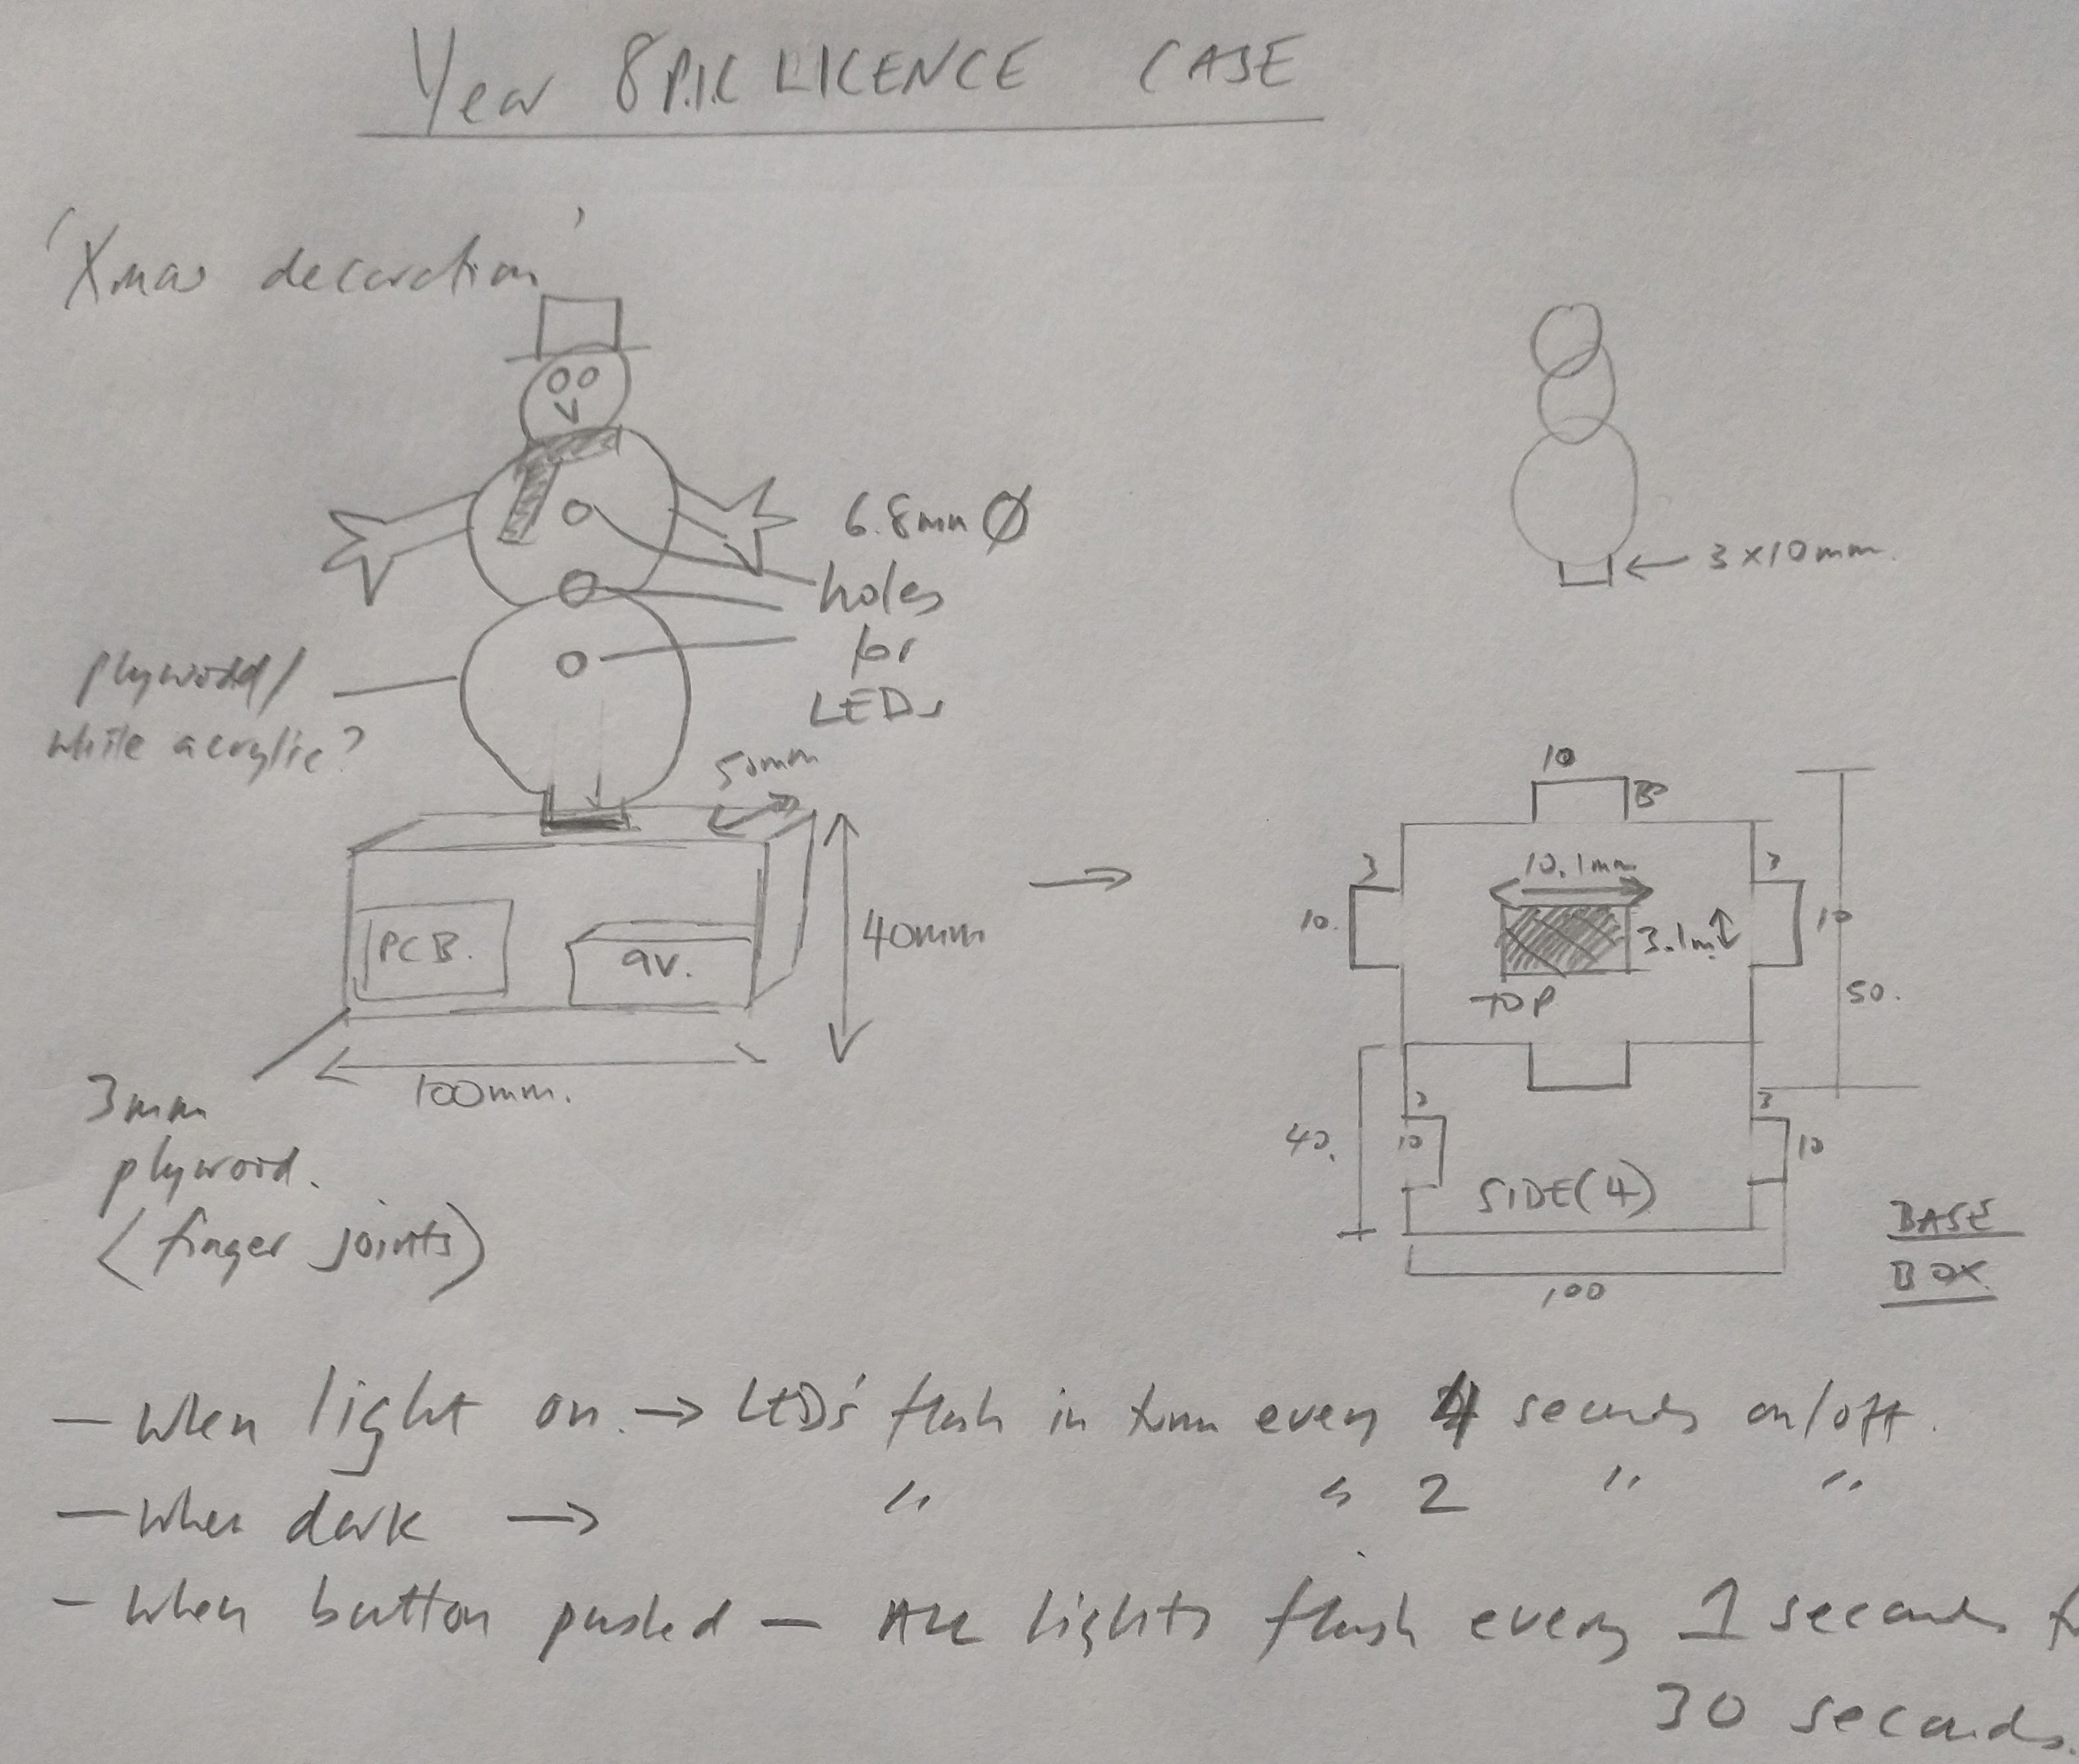 Year 8 P.I.C LICENCE CASE
'Xmas decoration'
6.8mm Ø
holes
for
LEDs
3 x 10mm.
plywood/
white acrylic?
50mm
PCB.
9V.
40mm
100mm.
3mm
plywood.
(finger joints)
10
3
3
10.1mm
3
10.
3.1m
10
TOP
50.
3
3
40.
10
10
SIDE (4)
100
BASE
BOX
- When light on. → LED's flash in turn every 4 seconds on/off.
- When dark → " " 2 " "
- When button pushed - ALL lights flash every 1 seconds
30 seconds.